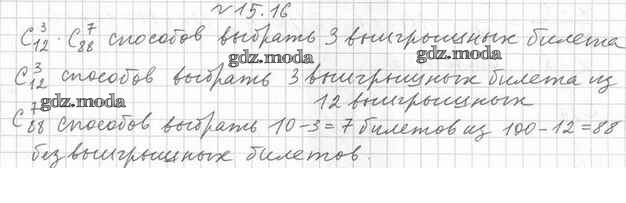 № 15.16
C₁₂³ · C₈₈⁷ способов выбрать 3 выигрышных билета
gdz.moda gdz.moda
C₁₂³ способов выбрать 3 выигрышных билета из
gdz.moda 12 выигрышных gdz.moda
C₈₈⁷ способов выбрать 10-3=7 билетов из 100-12=88
без выигрышных билетов.